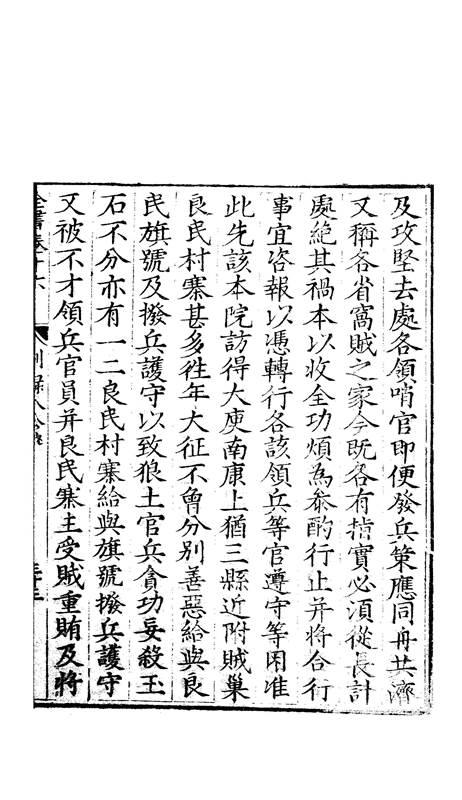 及攻堅去處各領哨官即便發兵策應同舟共濟
又稱各省窩賊之家今既各有指實必須從長計
處絶其禍本以收全功煩為叅酌行止并將合行
事宜咨報以憑轉行各該領兵等官遵守等因准
此先該本院訪得大庾南康上猶三縣近附賊巢
良民村寨甚多徃年大征不曾分别善惡給與良
民旗號及撥兵護守以致狼土官兵貪功妄殺玉
石不分亦有一二良民村寨給與旗號撥兵護守
又被不才領兵官員并良民寨主受賊重賄及將
全書卷十六